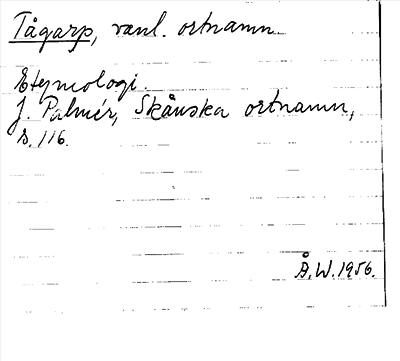 Tågarp, vanl. ortnamn
Etymologi.
J. Palmér, Skånska ortnamn,
s. 116.
Å.W. 1956.